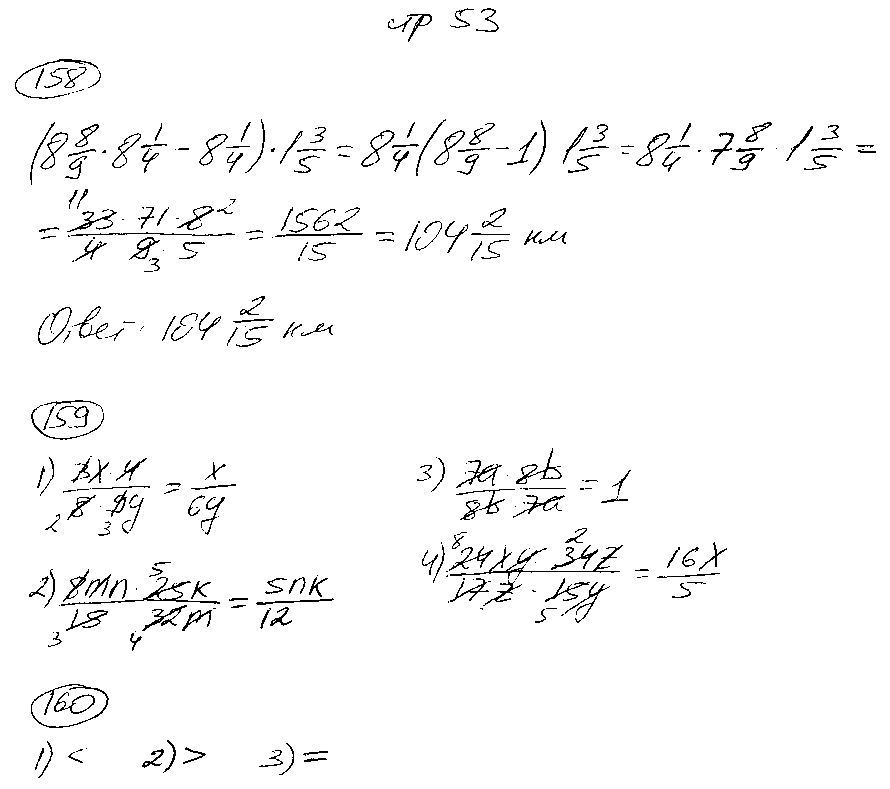 стр 53
158
(8 8/9 · 8 1/4 − 8 1/4) · 1 3/5 = 8 1/4 (8 8/9 − 1) 1 3/5 = 8 1/4 · 7 8/9 · 1 3/5 =
= (33 · 71 · 8)/(4 · 9 · 5) = 1562/15 = 104 2/15 км
Ответ: 104 2/15 км
159
1) (3x · 4)/(8 · 9y) = x/6y
3) 7a/8b · 8b/7a = 1
2) (8mn · 25k)/(18 · 32m) = 5nk/12
4) (24xy · 34z)/(17z · 15y) = 16x/5
160
1) < 2) > 3) =